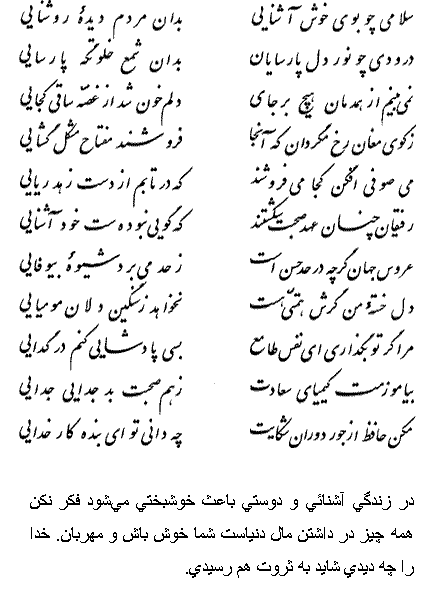 سلامی چو بوی خوش آشنایی بدان مردم دیدهٔ روشنایی
درودی چو نور دل پارسایان بدان شمع خلوتگه پارسایی
نمی‌بینم از همدمان هیچ بر جای دلم خون شد از غصه ساقی کجایی
ز کوی مغان رخ مگردان که آنجا فروشند مفتاح مشکل گشایی
می صوفی افکن کجا می‌فروشند که در تابم از دست زهد ریایی
رفیقان چنان عهد صحبت شکستند که گویی نبوده‌ست خود آشنایی
عروس جهان گرچه در حد حسن است ز حد می‌برد شیوهٔ بیوفایی
دل خستهٔ من گرش همتی هست نخواهد ز سنگین دلان مومیایی
مرا گر تو بگذاری ای نفس طامع بسی پادشایی کنم در گدایی
بیاموزمت کیمیای سعادت ز هم صحبت بد جدایی جدایی
مکن حافظ از جور دوران شکایت چه دانی تو ای بنده کار خدایی
در زندگي آشنائي و دوستي باعث خوشبختي مي‌شود فكر نكن
همه چيز در داشتن مال دنياست شما خوش باش و مهربان. خدا
را چه ديدي شايد به ثروت هم رسيدي.